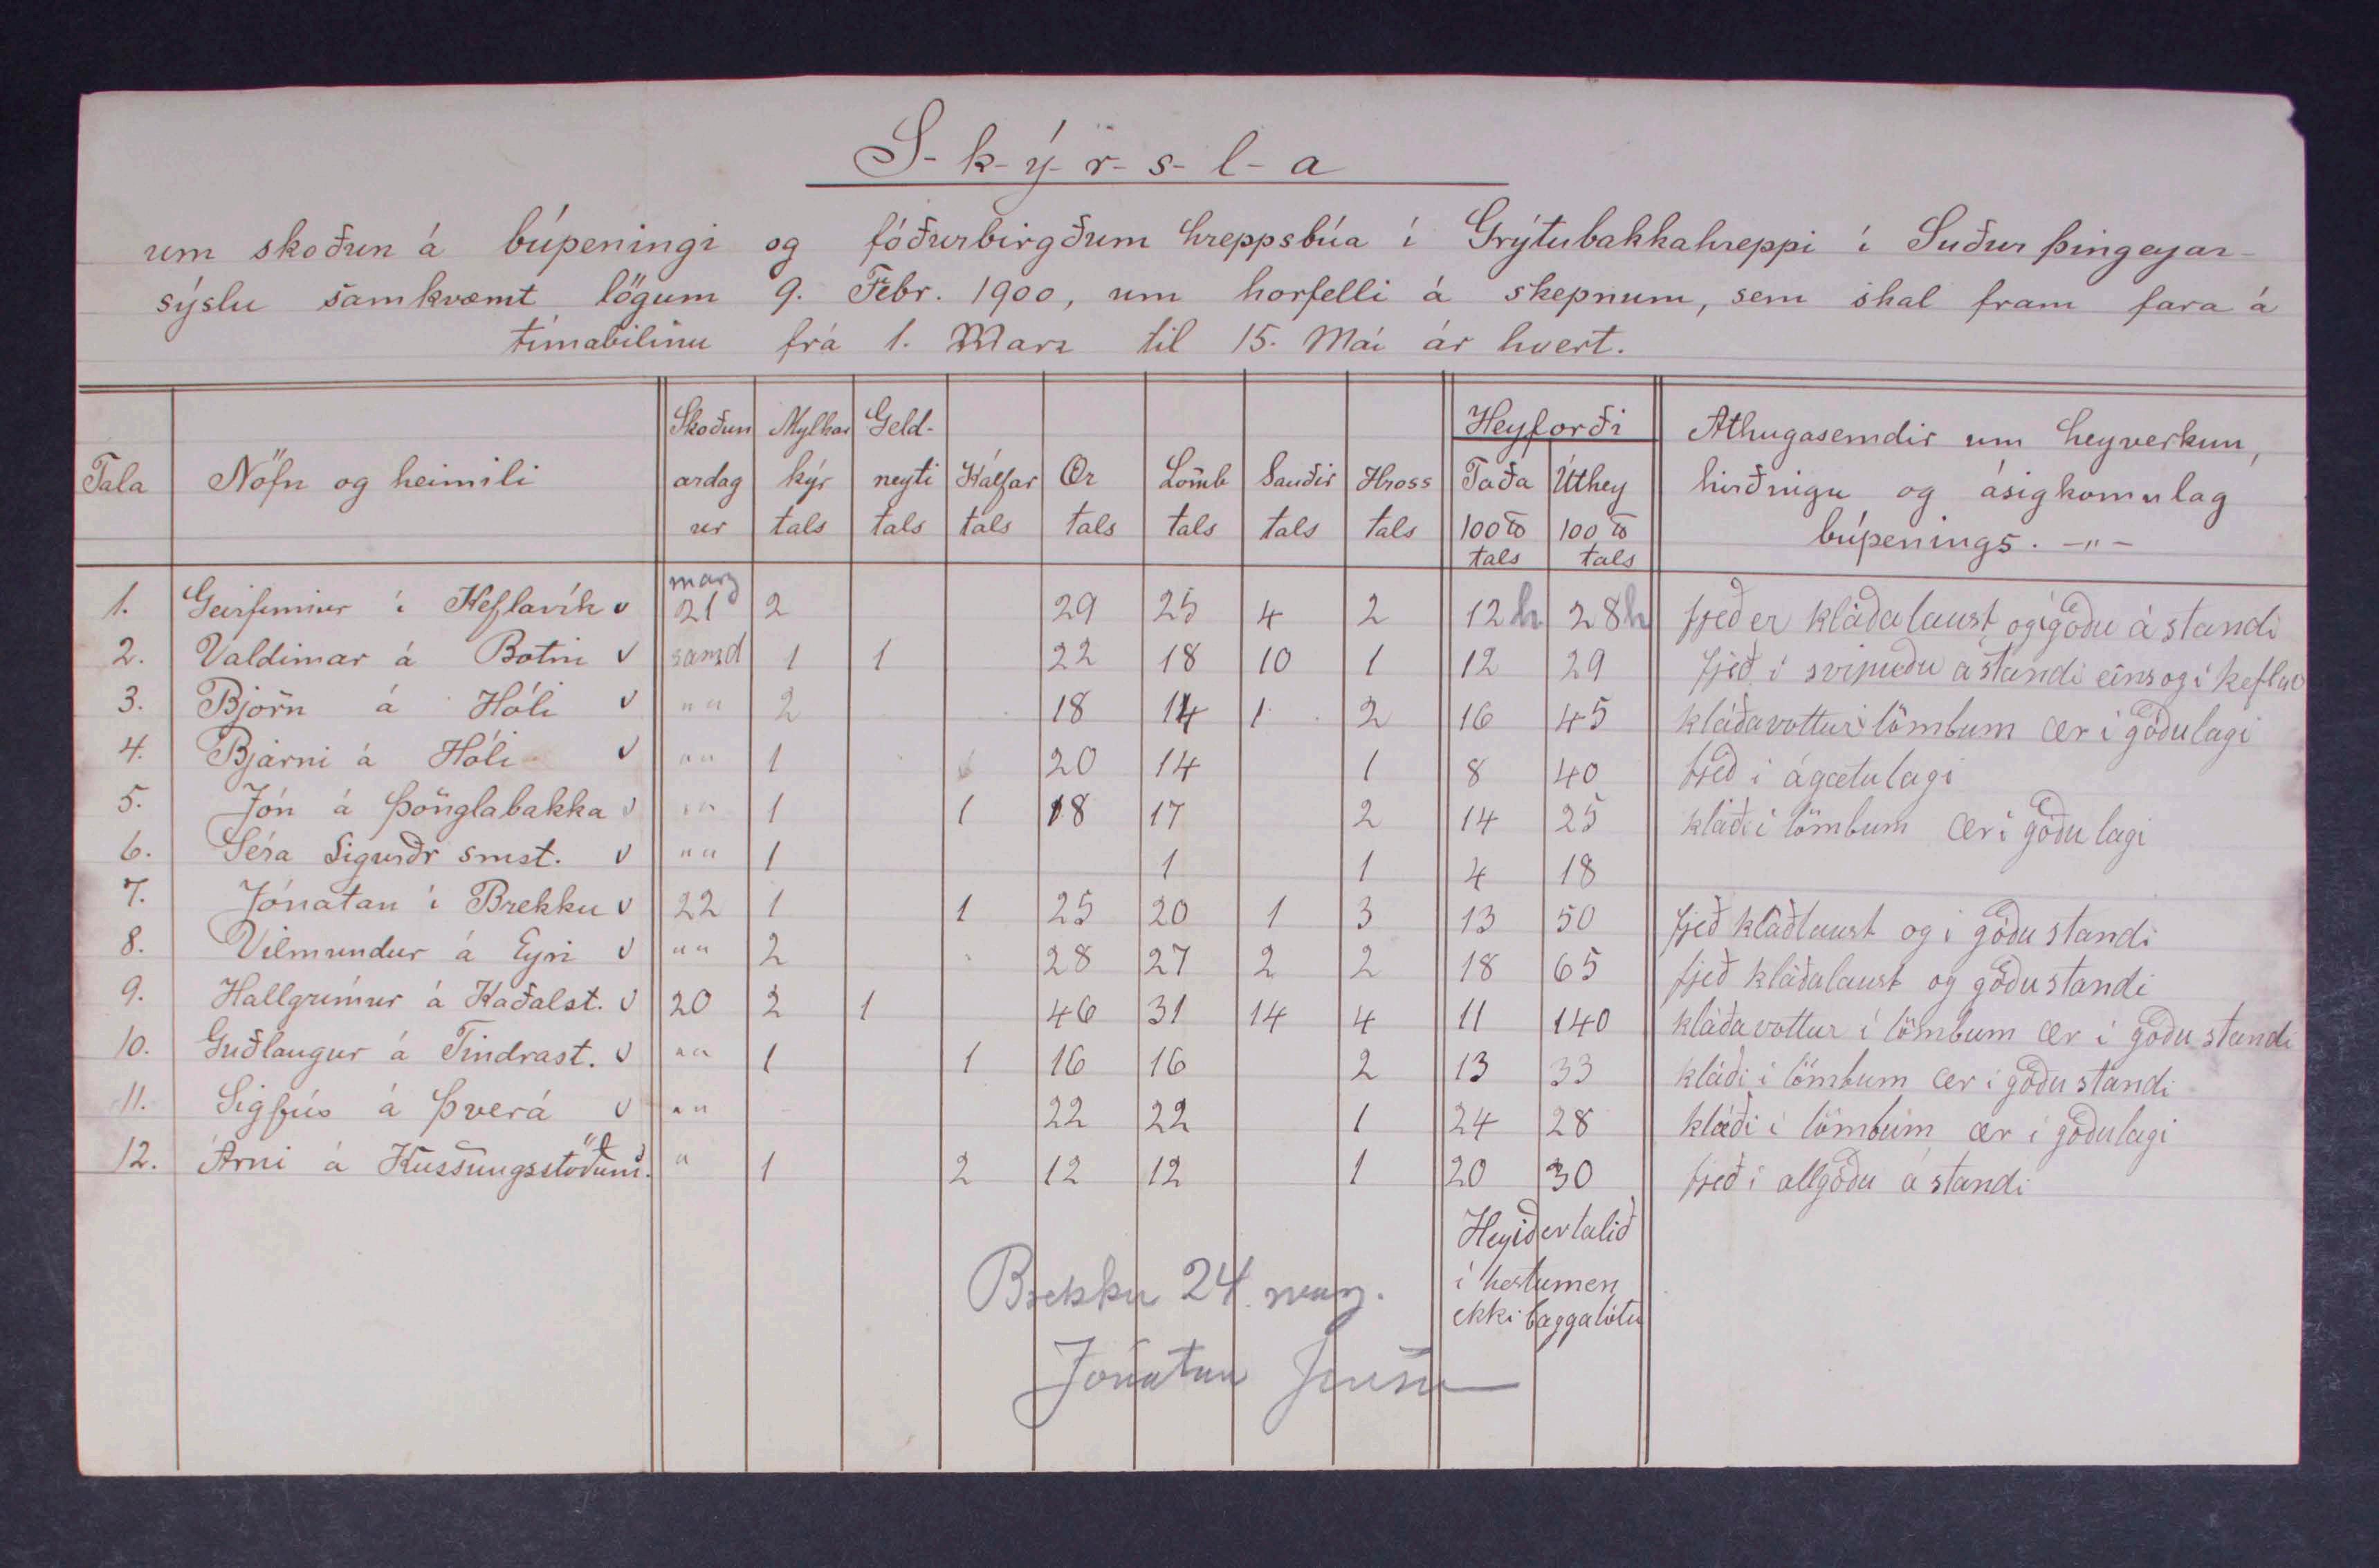 S-k-ý-r-s-l-a
um skoðun á búpeningi og fóðurbirgðum hreppsbúa í Grýtubakkahreppi í Suður þingeyjar-
sýslu samkvæmt lögum 9. Febr. 1900, um horfelli á skepnum, sem skal fram fara á
tímabilinu frá 1. Marz til 15. Mai ár hvert.
Tala Nöfn og heimili Skoðunardagur Mylkar kýr tals Geldneyti tals Kálfar tals Ær tals Lömb tals Sauðir tals Hross tals Heyforði Taða 100 ℔ tals Úthey 100 ℔ tals Athugasemdir um heyverkun, hirðingu og ásigkomulag búpenings. -"-
1. Geirfinnur í Keflavík v marz 21 2 29 25 4 2 12 h 28 h fjeð er kláðalaust og í góðu á standi
2. Valdimar á Botni v samd 1 1 22 18 10 1 12 29 fjeð í svipuðu ástandi eins og í keflav
3. Björn á Hóli v "" 2 18 14 1 2 16 45 kláðavottur í lömbum ær í góðulagi
4. Bjarni á Hóli v "" 1 20 14 1 8 40 fjeð í ágætulagi
5. Jón á Þönglabakka v "" 1 1 18 17 2 14 25 kláði í lömbum ær í góðu lagi
6. Séra Sigurðr smst. v "" 1 1 1 4 18
7. Jónatan í Brekku v 22 1 1 25 20 1 3 13 50 fjeð kláðlaust og í góðu standi
8. Vilmundur á Eyri v "" 2 28 27 2 2 18 65 fjeð kláðalaust og góðu standi
9. Hallgrímur á Kaðalst. v 20 2 1 46 31 14 4 11 140 kláðavottur í lömbum ær í góðu standi
10. Guðlaugur á Tindrast. v "" 1 1 16 16 2 13 33 kláði í lömbum ær í góðu standi
11. Sigfús á Þverá v "" 22 22 1 24 28 kláði í lömbum ær í góðulagi
12. Árni á Kussungsstöðum. v " 1 2 12 12 1 20 30 fjeð í allgóðu á standi
Heyið er talið
í hestum en
ekki baggatölu
Brekku 24. marz.
Jónatan